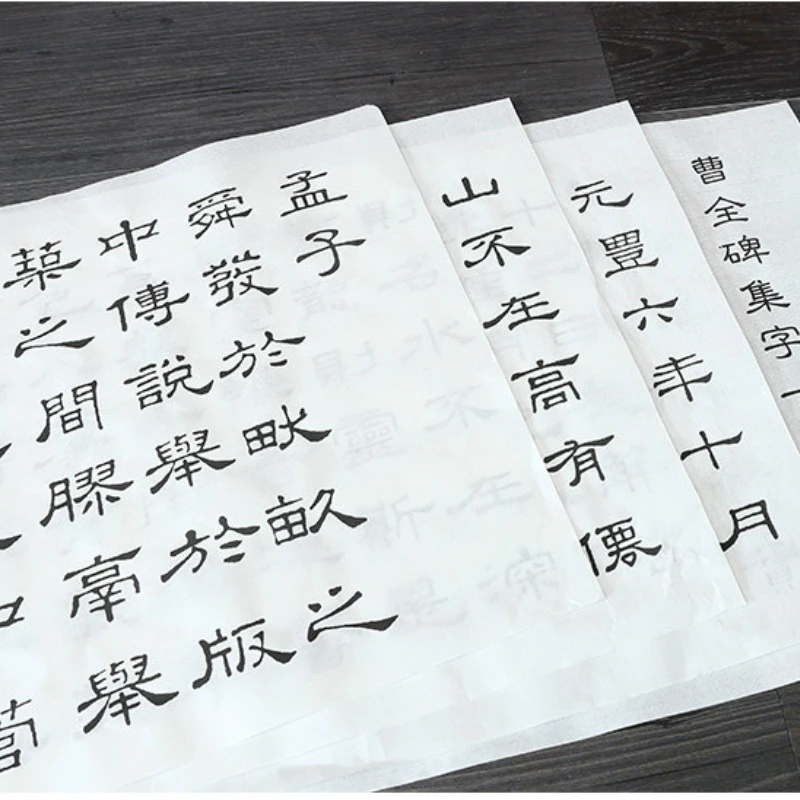 曹全碑集字
元豐六年十月
山不在高有僊
孟子
舜發於畎畝之
中傅說舉於版
築之間膠鬲舉